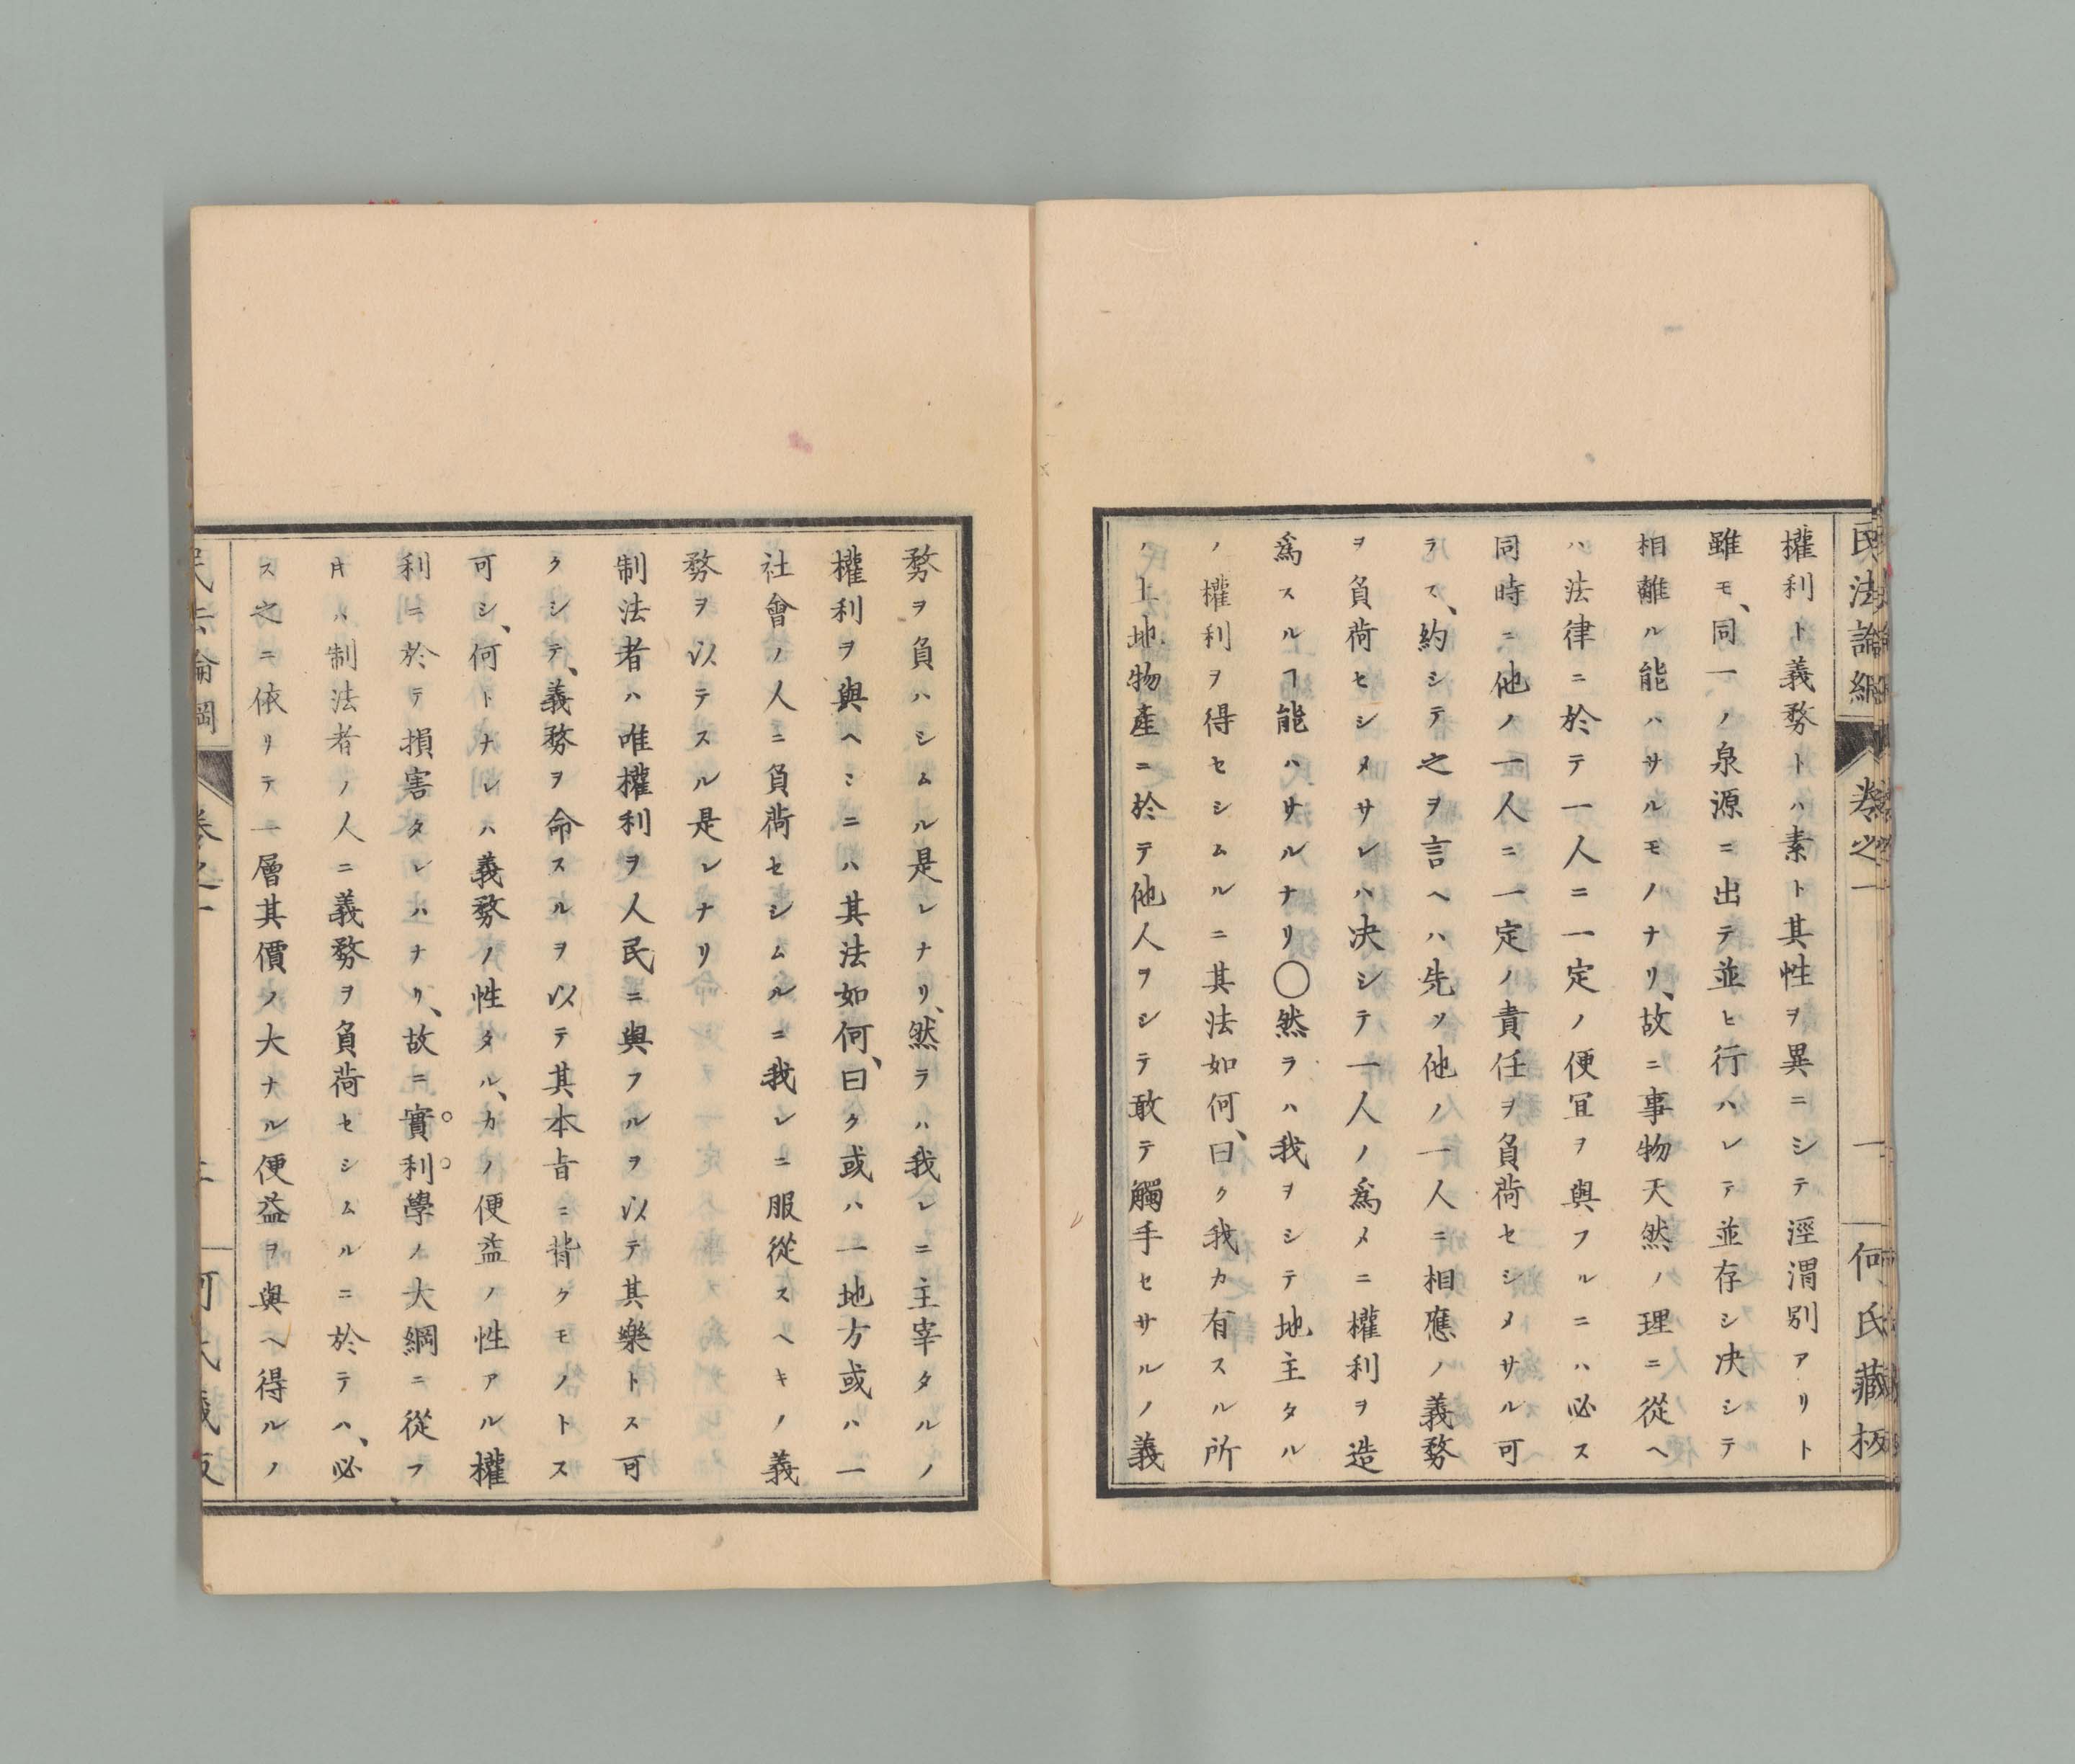 民法論綱 卷之一 一 何氏藏板
權利ト義務トハ素ト其性ヲ異ニシテ涇渭別アリト
雖モ、同一ノ泉源ニ出テ並ヒ行ハレテ並存シ决シテ
相離ル能ハサルモノナリ、故ニ事物天然ノ理ニ從ヘ
ハ法律ニ於テ一人ニ一定ノ便冝ヲ與フルニハ必ス
同時ニ他ノ一人ニ一定ノ責任ヲ負荷セシメサル可
ラス、約シテ之ヲ言ヘハ先ツ他ノ一人ニ相應ノ義務
ヲ負荷セシメサレハ决シテ一人ノ爲メニ權利ヲ造
爲スルヿ能ハサルナリ〇然ラハ我ヲシテ地主タル
ノ權利ヲ得セシムルニ其法如何、曰ク我カ有スル所
ノ土地物產ニ於テ他人ヲシテ敢テ觸手セサルノ義
務ヲ負ハシムル是レナリ、然ラハ我レニ主宰タルノ
權利ヲ與ヘンニハ其法如何、曰ク或ハ一地方或ハ一
社會ノ人ニ負荷セシムルニ我レニ服從スヘキノ義
務ヲ以テスル是レナリ
制法者ハ唯權利ヲ人民ニ與フルヲ以テ其樂トス可
クシテ、義務ヲ命スルヲ以テ其本旨ニ背クモノトス
可シ、何トナレハ義務ノ性タル、カノ便益ノ性アル權
利ニ於テ損害タレハナリ、故ニ實利學ノ大綱ニ從フ
片ハ制法者ノ人ニ義務ヲ負荷セシムルニ於テハ、必
ス之ニ依リテ一層其價ノ大ナル便益ヲ與ヘ得ルノ
民法論綱 卷之一 二 何氏藏板